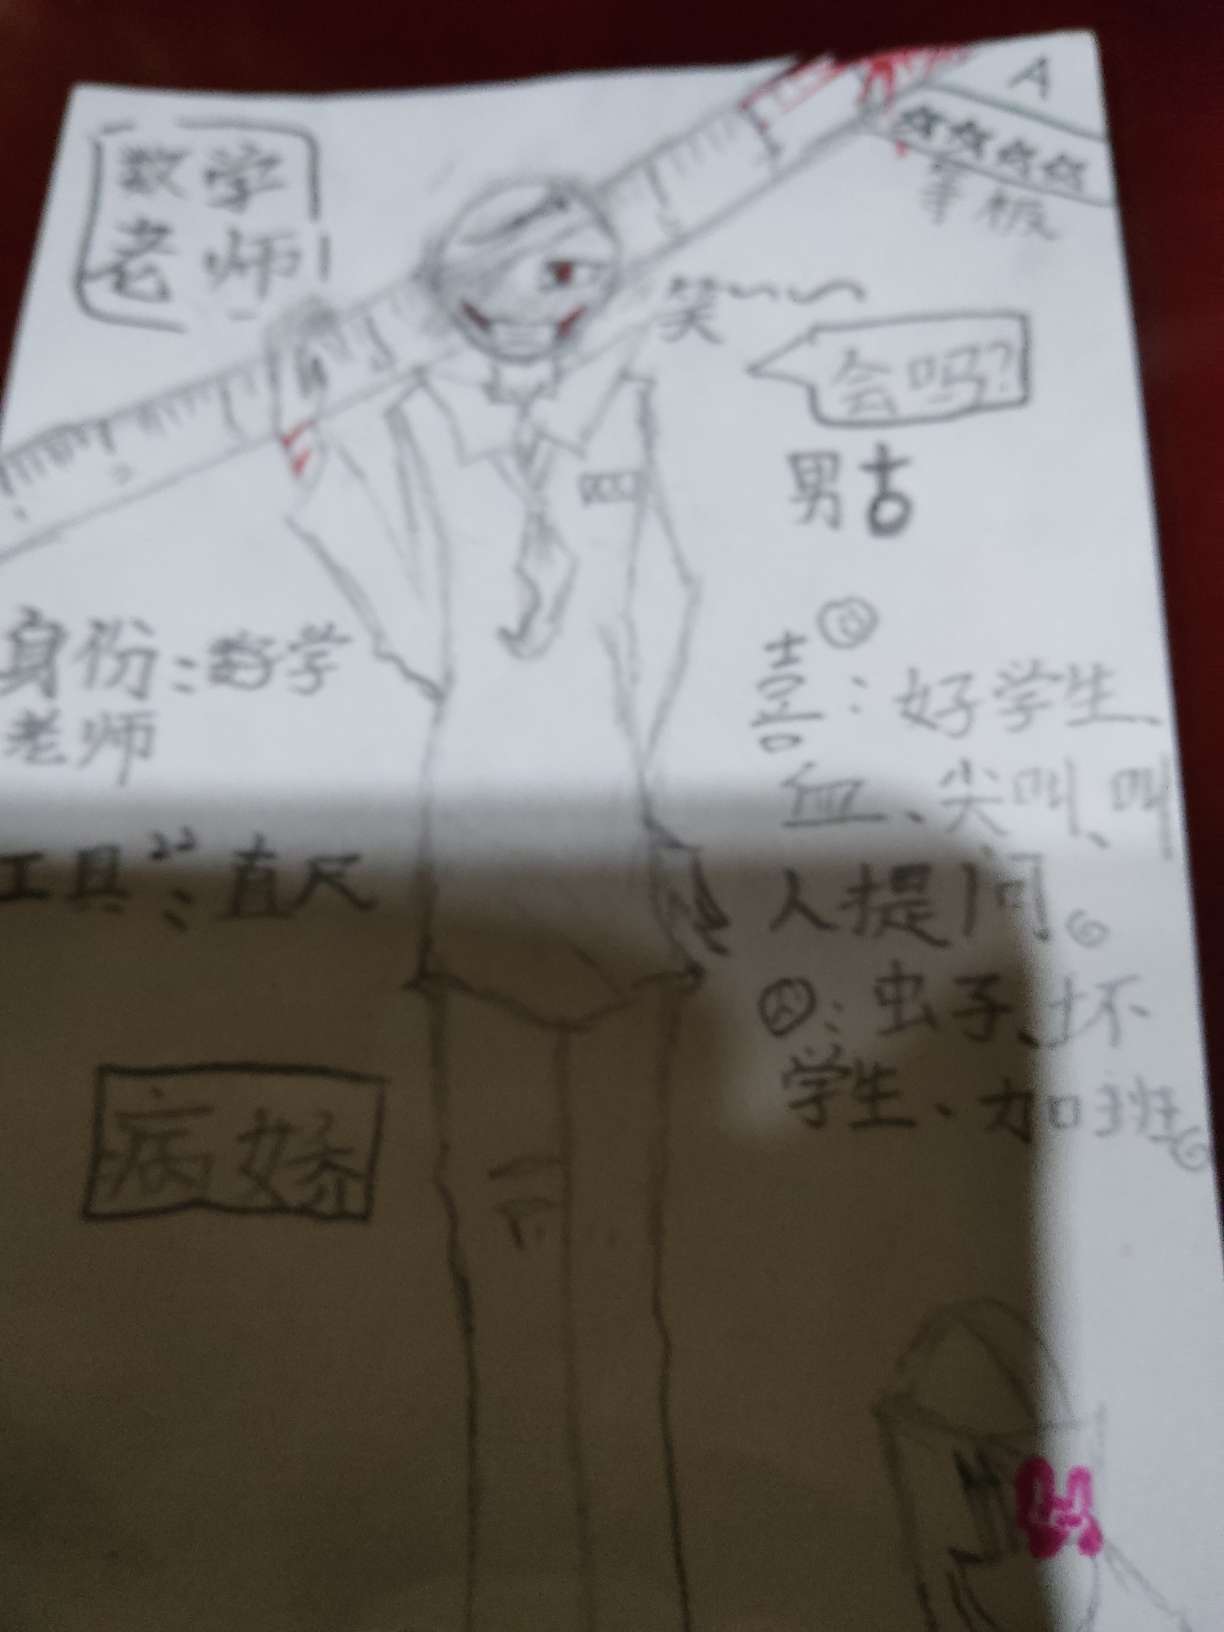 数学
老师
A
☆☆☆☆
掌板
笑~~~
会吗?
男
身份:数学
老师
喜:好学生、
血、尖叫、叫
人提问。
工具:直尺
囚:虫子、坏
学生、加班。
病娇